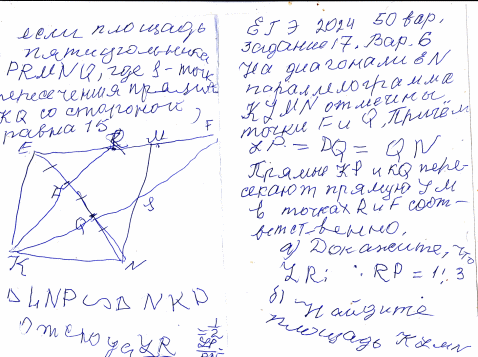 если площадь
пятиугольника
PRMNQ, где S - точка
пересечения прямой
KQ со стороной
равна 15
E
R
M
F
P
Q
S
K
N
Δ LNP ∽ Δ NKP
Отсюда LR
ЕГЭ 2024 50 вар.
Задание 17. Вар. 6
На диагонали LN
параллелограмма
KLMN отмечены
точки F и Q, Причём
LP = PQ = QN
Прямые KP и KQ пере-
секают прямую LM
в точках R и F соот-
ветственно.
а) Докажите, что
LR : RP = 1 : 3
б) Найдите
площадь KLMN